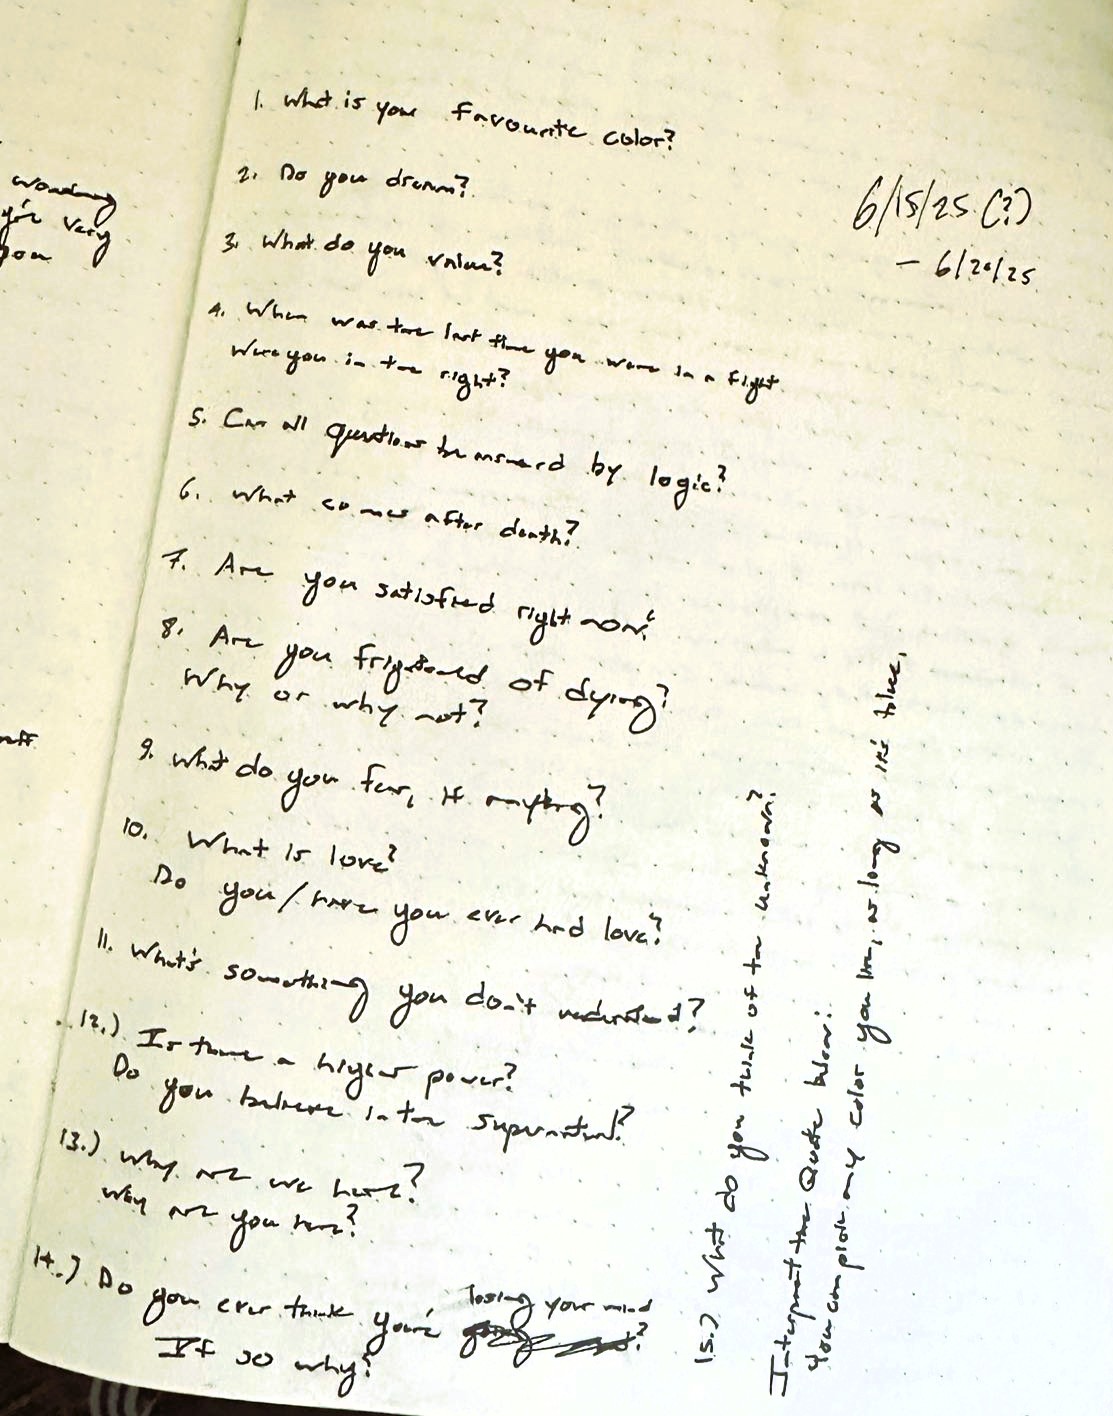 you
1. What is your favourite color?
2. Do you dream?
3. What do you value?
4. When was the last time you were in a fight
Were you in the right?
5. Can all questions be answered by logic?
6. What comes after death?
7. Are you satisfied right now?
8. Are you frightened of dying?
Why or why not?
9. What do you fear, if anything?
10. What is love?
Do you / have you ever had love?
11. What's something you don't understand?
12.) Is there a higher power?
Do you believe in the supernatural?
13.) Why are we here?
Why are you here?
14.) Do you ever think you're losing your mind?
If so why?
6/15/25 (?)
- 6/20/25
15.) What do you think of the unknown?
Interpret the Quote below:
You can pick any color you like, as long as it's blue.